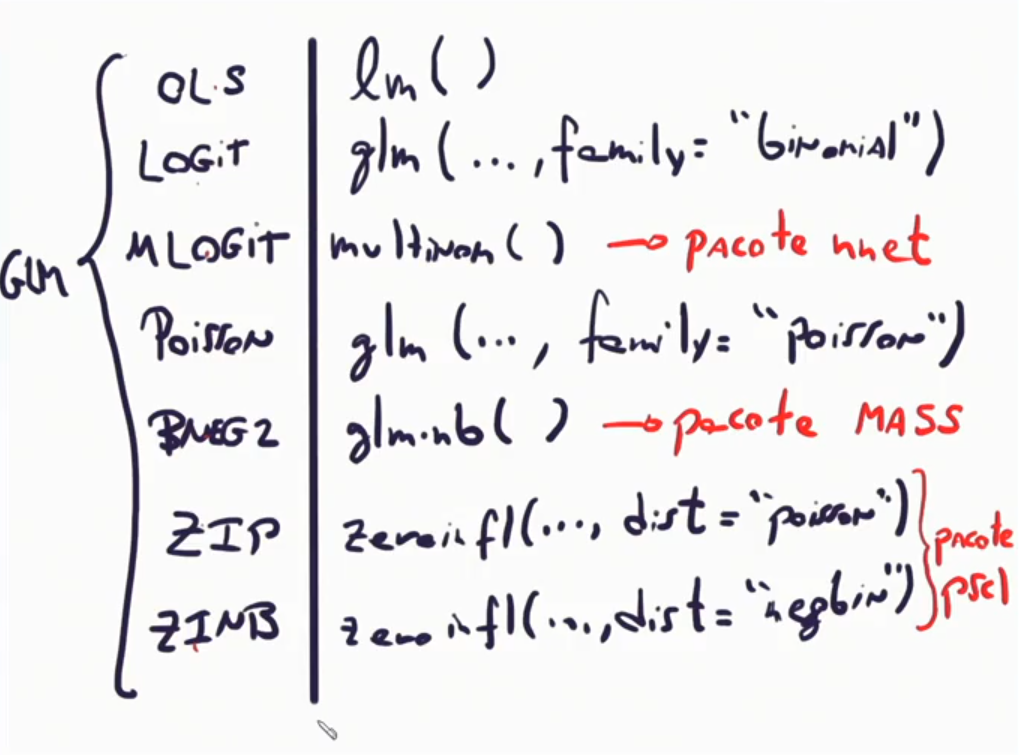 OLS lm( )
LOGiT glm(..., family= "binomial")
GLM MLOGiT multinom( ) → pacote nnet
Poisson glm(..., family= "poisson")
BNEG2 glm.nb( ) → pacote MASS
ZIP zeroinfl(..., dist = "poisson") pacote
ZINB zeroinfl(..., dist= "negbin") pscl